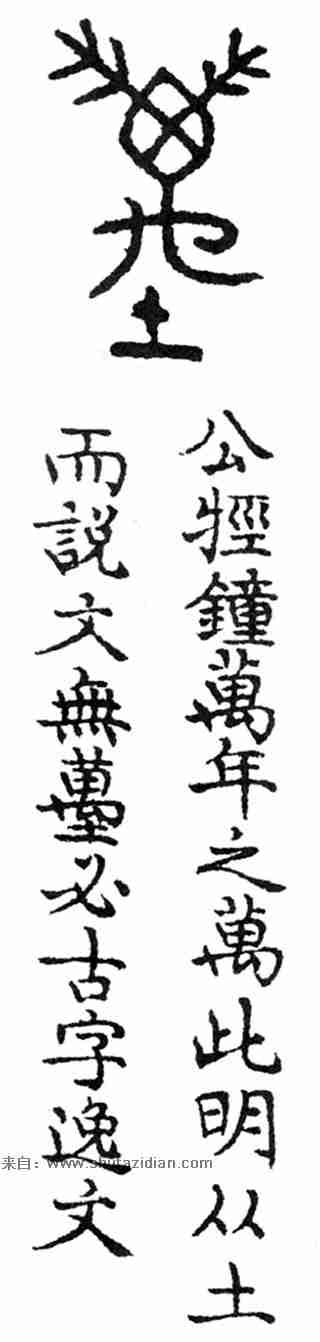 公牼鐘萬年之萬此明从土
而說文無𡓜必古字逸文
来自：www.shufazidian.com